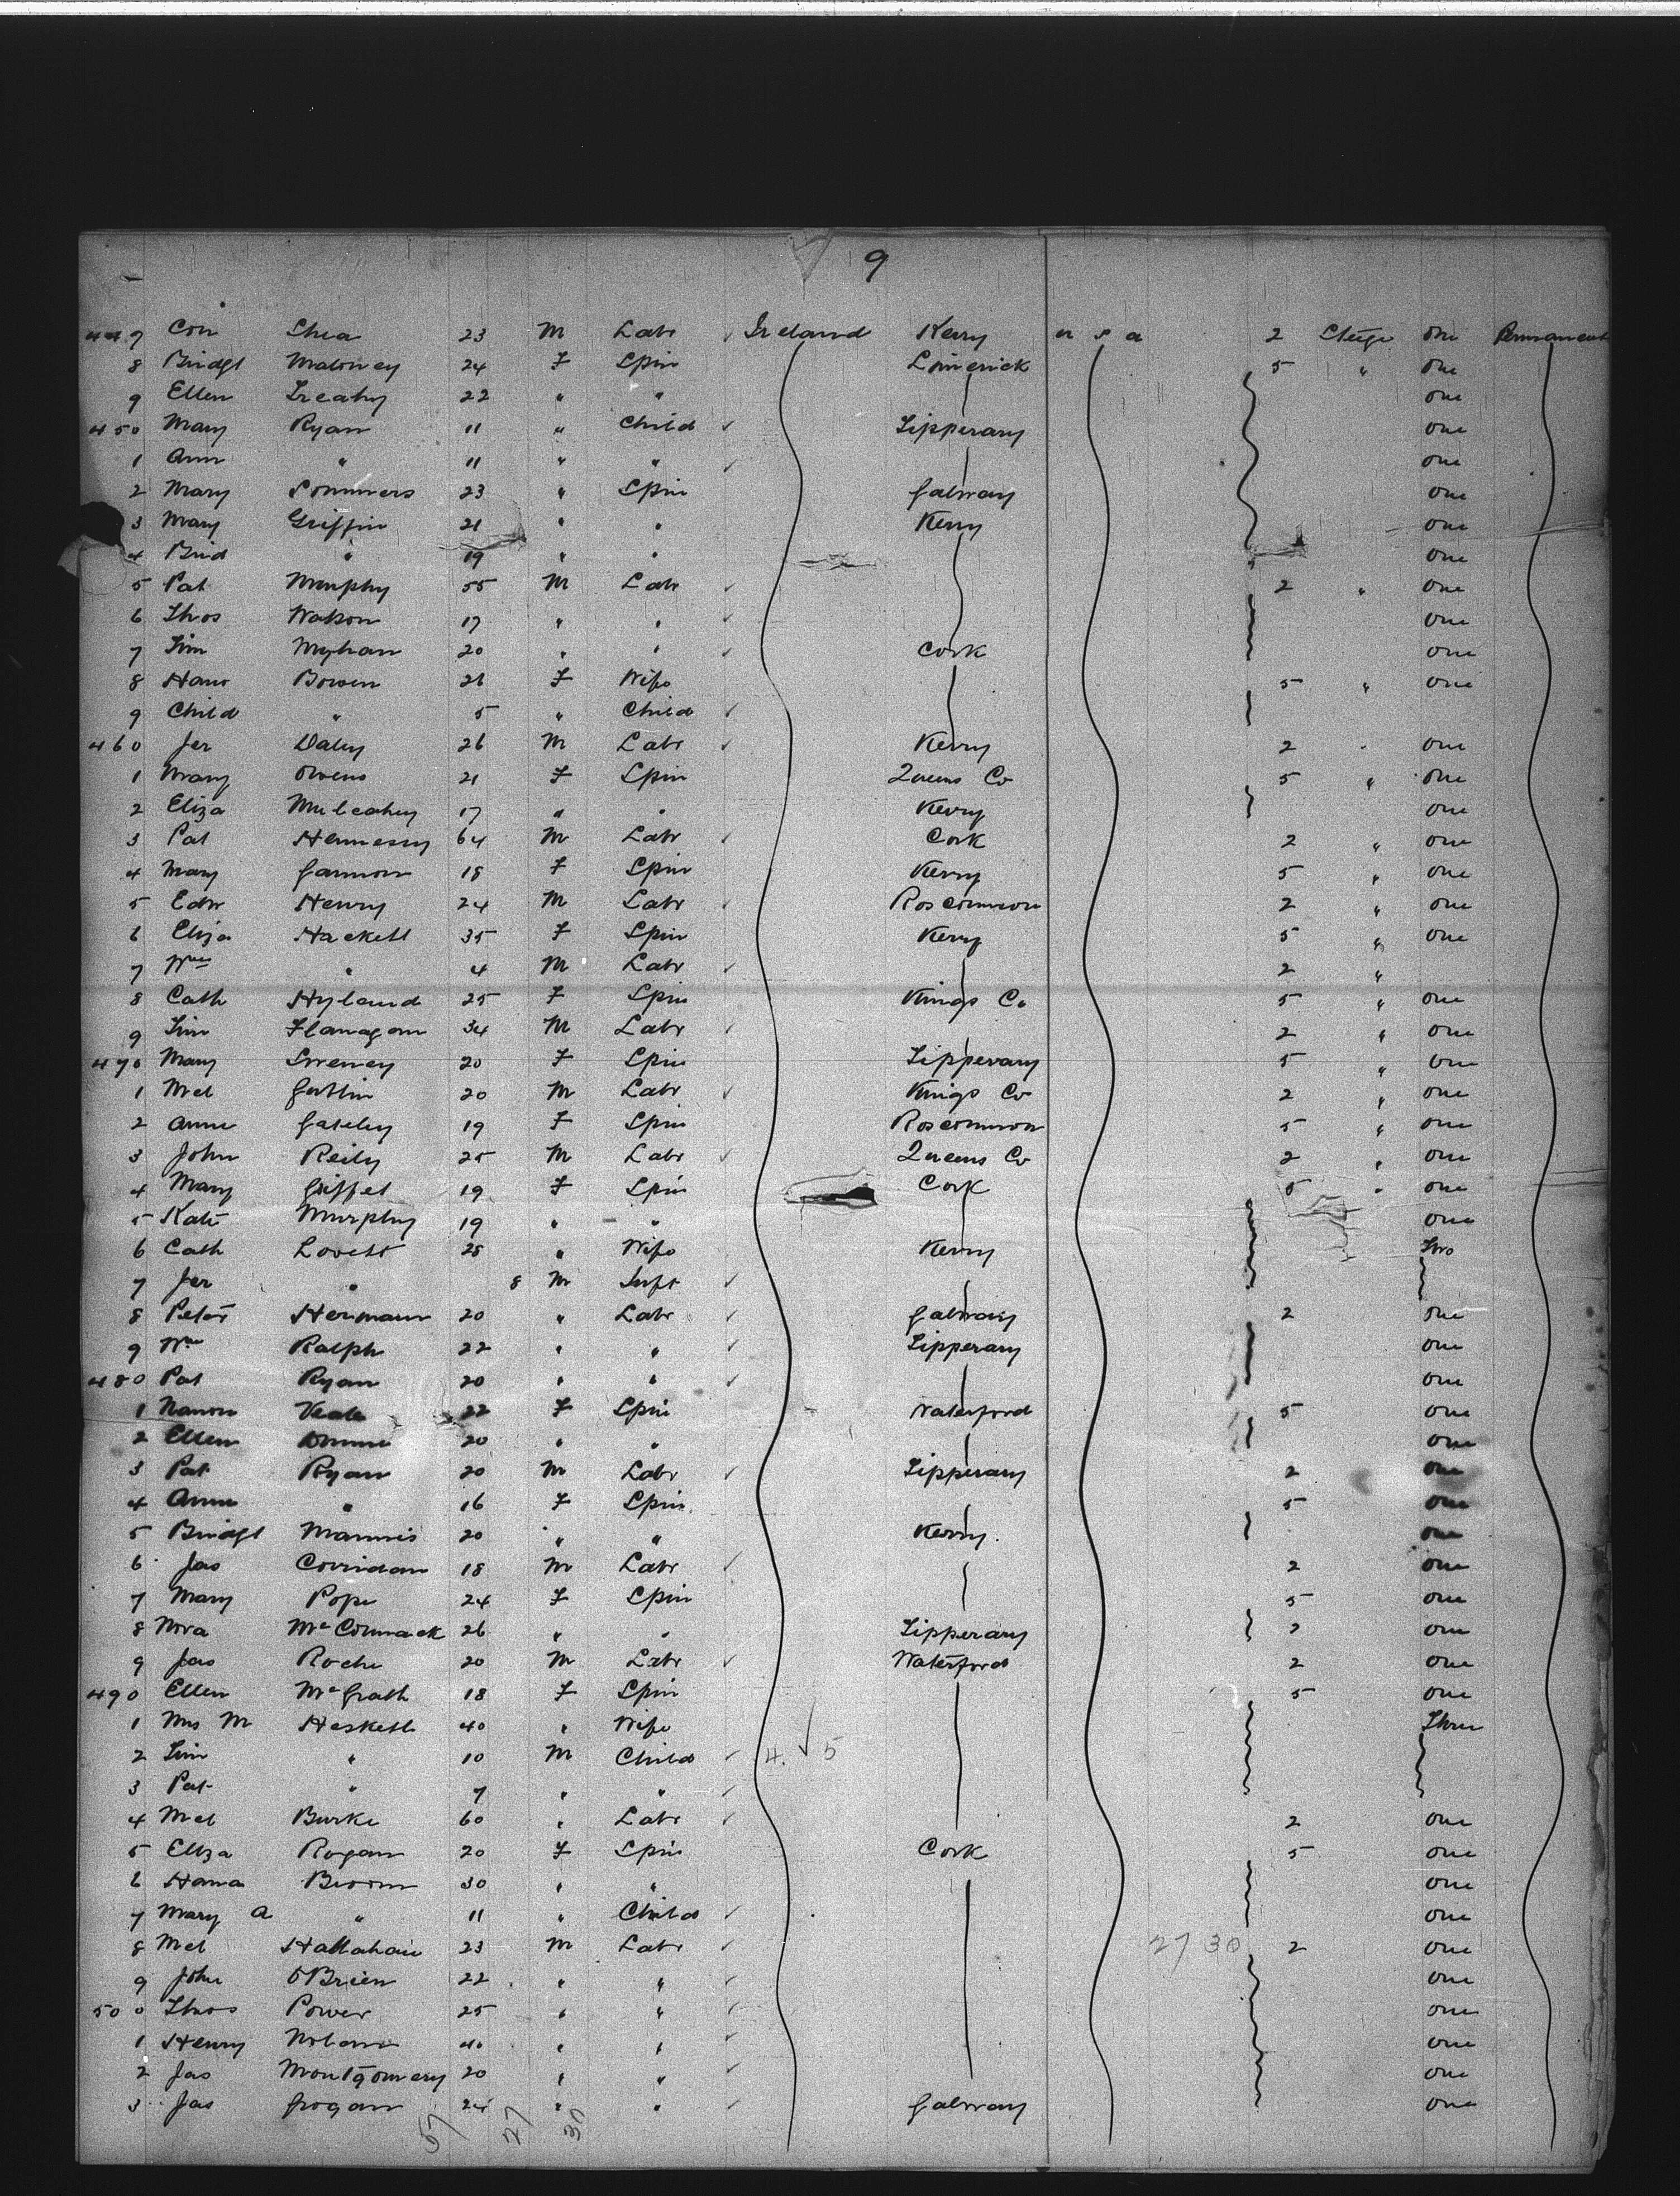 9
447 Con Shea 23 M Labr ✓ Ireland Kerry U S A 2 Steège one Permanent
8 Bridgt Maloney 24 F Spin Limerick 5 " one
9 Ellen Treahy 22 " " one
450 Mary Ryan 11 " Child ✓ Tipperary one
1 Ann " 11 " " ✓ one
2 Mary Sommers 23 " Spin Galway one
3 Mary Griffin 21 " " Kerry one
4 Brid " 19 " " one
5 Pat Murphy 55 M Labr ✓ 2 " one
6 Thos Watson 17 " " ✓ one
7 Tim Myhan 20 " " ✓ Cork one
8 Hano Bowen 26 F Wife 5 " one
9 Child " 5 " Child ✓
460 Jer Daley 26 M Labr ✓ Kerry 2 " one
1 Mary Owens 21 F Spin Queens Co 5 " one
2 Eliza Mulcahy 17 " " Kerry one
3 Pat Hennessy 64 M Labr ✓ Cork 2 " one
4 Mary Gannon 18 F Spin Kerry 5 " one
5 Edw Henry 24 M Labr ✓ Roscommon 2 " one
6 Eliza Hackett 35 F Spin Kerry 5 " one
7 Wm " 4 M Labr ✓ 2 "
8 Cath Hyland 25 F Spin Kings Co 5 " one
9 Tim Flanagan 34 M Labr ✓ 2 " one
470 Mary Sweney 20 F Spin Tipperary 5 " one
1 Mcl 20 M Labr ✓ Kings Co 2 " one
2 Anne Gateley 19 F Spin Roscommon 5 " one
3 John Reily 25 M Labr ✓ Queens Co 2 " one
4 Mary 19 F Spin Cork 5 " one
5 Kate Murphy 19 " " one
6 Cath Lovett 28 " Wife Kerry Two
7 Jer " 8 M Inft ✓
8 Peter Hermann 20 " Labr ✓ Galway 2 one
9 Wm Ralph 22 " " ✓ Tipperary one
480 Pat Ryan 20 " " ✓ one
1 Nanon Veale 22 F Spin Waterford 5 one
2 Ellen 20 " " one
3 Pat Ryan 20 M Labr ✓ Tipperary 2 one
4 Anne " 16 F Spin 5 one
5 Bridgt Mannis 20 " " Kerry one
6 Jas Corridan 18 M Labr ✓ 2 one
7 Mary Pope 24 F Spin 5 one
8 Nora McCormack 26 " " Tipperary 2 one
9 Jas Roche 20 M Labr ✓ Waterford 2 one
490 Ellen McGrath 18 F Spin 5 one
1 Mrs M Heskett 40 " Wife Three
2 Tim " 10 M Child ✓ 4. ✓ 5
3 Pat " 7 " " ✓
4 Mcl Burke 60 " Labr ✓ 2 one
5 Eliza Rogan 20 F Spin Cork 5 one
6 Hana 30 " " one
7 Mary A " 11 " Child ✓ one
8 Mcl Hallahan 23 M Labr ✓ 27 30 2 one
9 John O'Brien 22 " " ✓ one
500 Thos Power 25 " " ✓ one
1 Henry Nolan 40 " " ✓ one
2 Jas Montgomery 20 " " ✓ one
3 Jas Grogan 24 " " ✓ Galway one
57 27 30